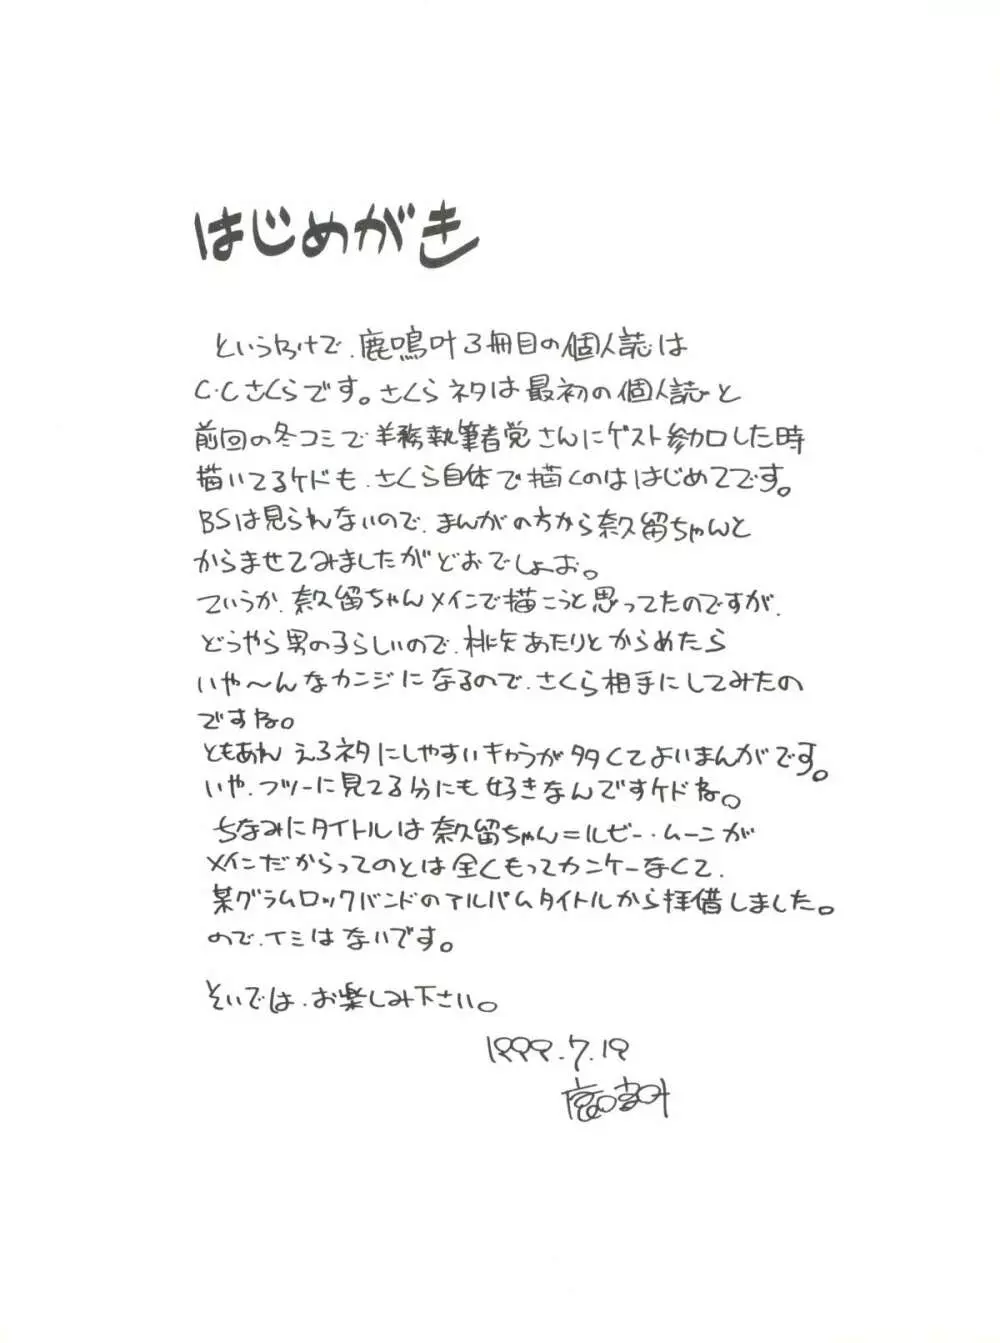 はじめがき
というわけで、鹿鳴叶3冊目の個人誌は
C.Cさくらです。さくらネタは最初の個人誌と
前回の冬コミで羊務執筆者党さんにゲスト参加した時
描いてるケドも、さくら自体で描くのははじめてです。
BSは見られないので、まんがの方から奈久留ちゃんと
からませてみましたがどおでしょお。
ていうか、奈久留ちゃんメインで描こうと思ってたのですが、
どうやら男の子らしいので、桃矢あたりとからめたら
いや〜んなカンジになるので、さくら相手にしてみたの
ですね。
ともあれ えろネタにしやすいキャラが多くてよいまんがです。
いや、フツーに見てる分にも好きなんですケドね。
ちなみにタイトルは奈久留ちゃん=ルビー・ムーンが
メインだからってのとは全くもってカンケーなくて、
某グラムロックバンドのアルバムタイトルから拝借しました。
ので、イミはないです。
そいでは、お楽しみ下さい。
1999.7.19